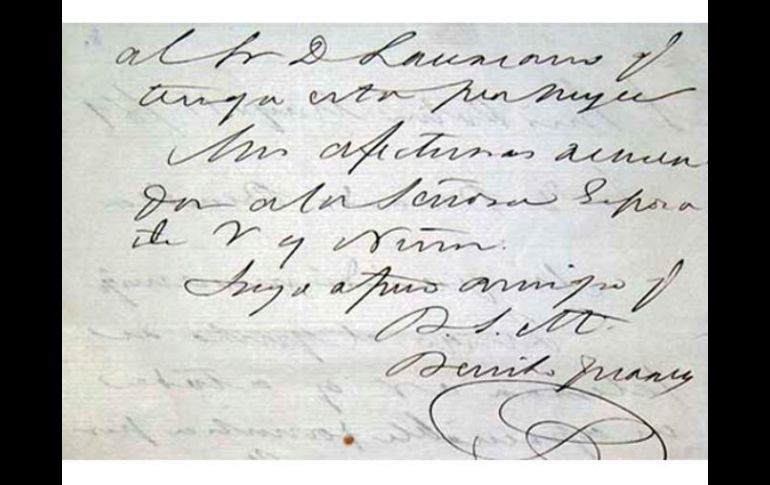 al Sr D Laureano q
tenga esta por suya
Mis afectuosos acuer
dos a la Señora Esposa
de V y Niños.
Suyo afmo amigo q
B. S. M.
Benito Juarez